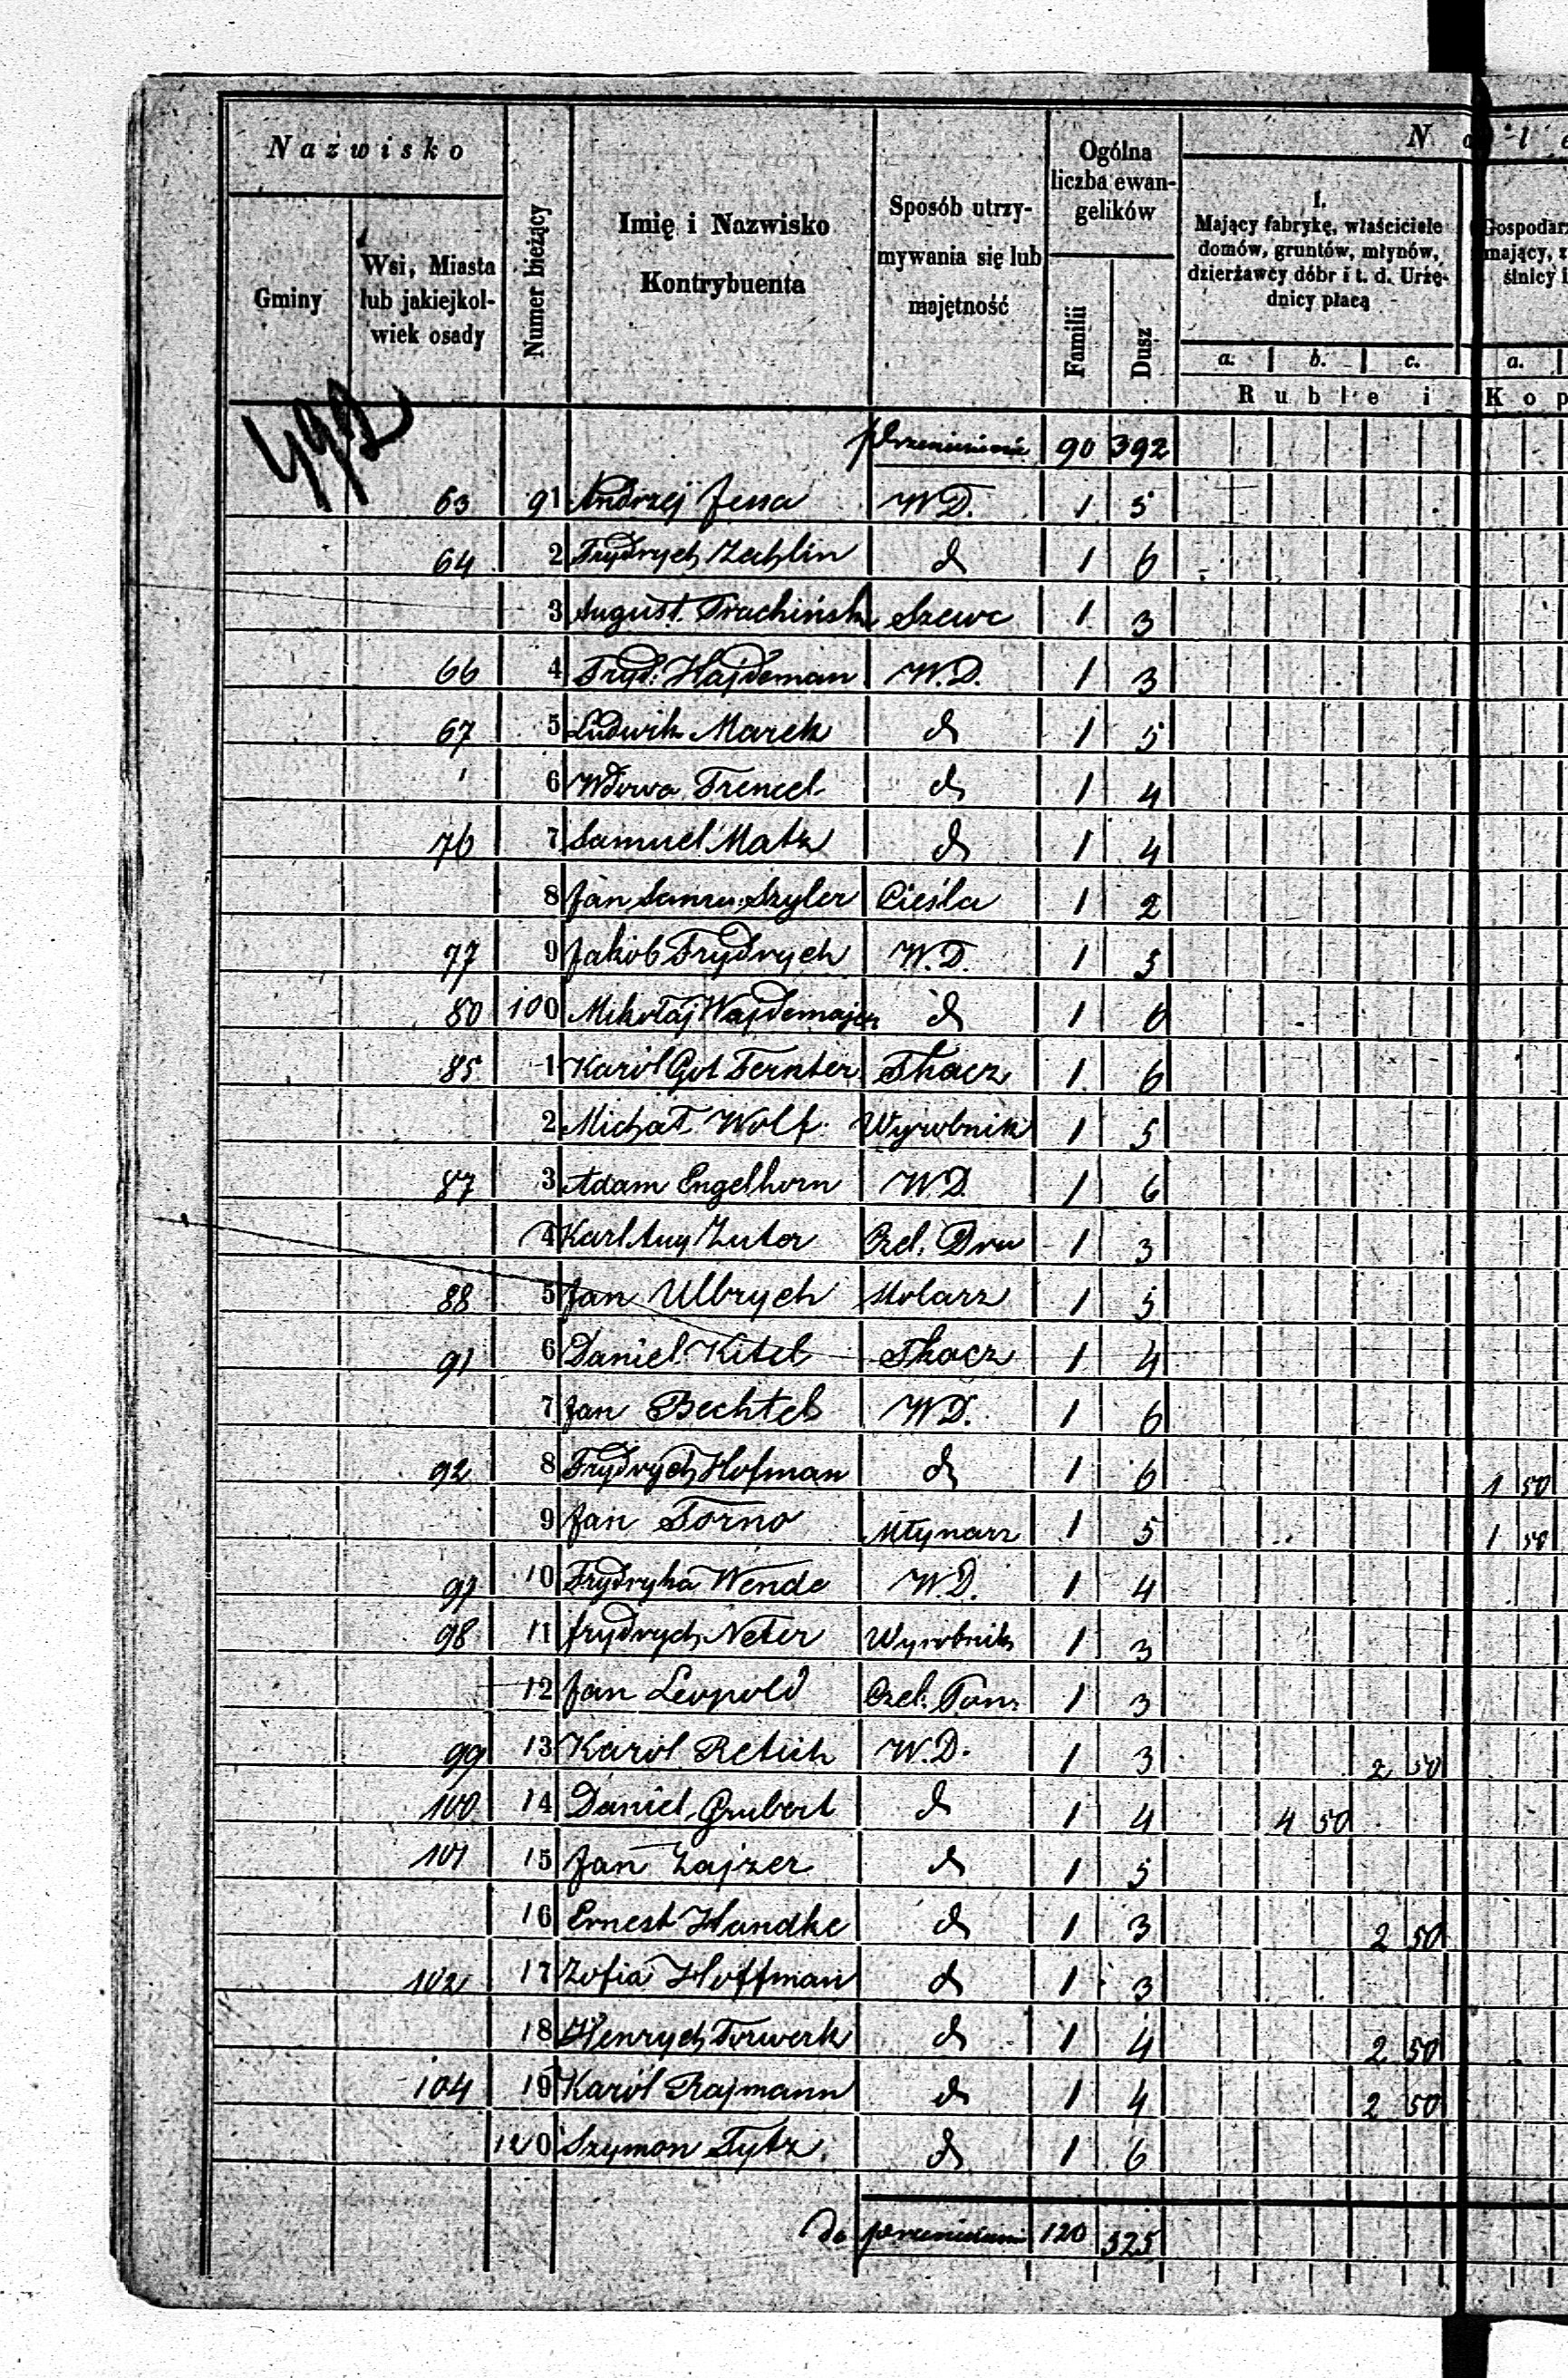 Nazwisko
Gminy
Wsi, Miasta lub jakiejkolwiek osady
Numer bieżący
Imię i Nazwisko Kontrybuenta
Sposób utrzymywania się lub majętność
Ogólna liczba ewangelików
Familii
Dusz
N a l
I.
Mający fabrykę, właściciele domów, gruntów, młynów, dzierżawcy dóbr i t. d. Urzędnicy płacą
a. b. c. a.
Ruble i Kop
492
90 392
63 91 Andrzej Jessa W.D. 1 5
64 2 Frydrych Zechlin d 1 6
3 August Trachińsk Szewc 1 3
66 4 Fryd: Hajdeman W.D. 1 3
67 5 Ludwik Marek d 1 5
6 Wdowa Frencel d 1 4
76 7 Samuel Matz d 1 4
8 Jan Samu: Szyler Cieśla 1 2
77 9 Jakób Frydrych W.D. 1 5
80 100 Mikołaj Wajdemajer d 1 6
85 1 Karól Got Fernter Tkacz 1 6
2 Michał Wolf Wyrobnik 1 5
87 3 Adam Engelhorn W.D. 1 6
4 Karl Aug Zuter Czel. Dru 1 3
88 5 Jan Ulbrych Molarz 1 5
91 6 Daniel Kitel Tkacz 1 4
7 Jan Bechtel W.D. 1 6
92 8 Frydrych Hofman d 1 6 1 50
9 Jan Torno Młynarz 1 5 1 50
97 10 Frydryka Wende W.D. 1 4
98 11 Frydrych Neter Wyrobnik 1 3
12 Jan Leopold Czel. Pon: 1 3
99 13 Karól Retich W.D. 1 3 2 50
100 14 Daniel Grubert d 1 4 4 50
101 15 Jan Zajzer d 1 5
16 Ernest Handke d 1 3 2 50
102 17 Zofia Hoffman d 1 3
18 Henrych Forwerk d 1 4 2 50
104 19 Karól Rajmann d 1 4 2 50
120 Szymon Tytz d 1 6
do przeniesienia 120 525